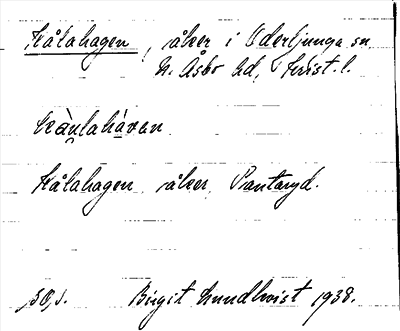 Kålahagen, åker i Oderljunga sn
N. Åsbo hd, Krist. l.
Kålahagen åker, Pantaryd.
Birgit Lundkvist 1938.